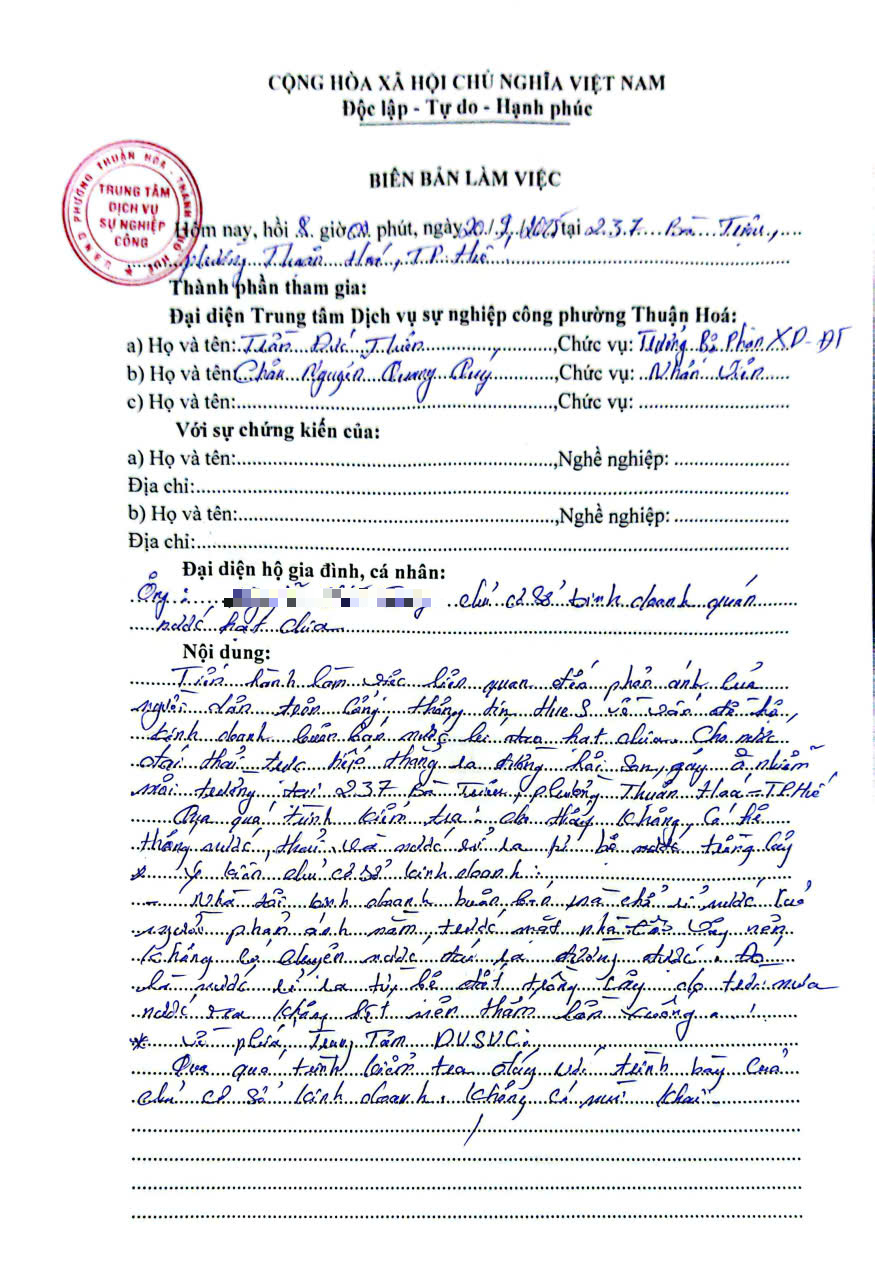 CỘNG HÒA XÃ HỘI CHỦ NGHĨA VIỆT NAM
Độc lập - Tự do - Hạnh phúc
BIÊN BẢN LÀM VIỆC
TRUNG TÂM
DỊCH VỤ
SỰ NGHIỆP
CÔNG
Hôm nay, hồi 8 giờ 00 phút, ngày 20/9/2025 tại 237 Bà Triệu,
phường Thuận Hoá, TP Huế
Thành phần tham gia:
Đại diện Trung tâm Dịch vụ sự nghiệp công phường Thuận Hoá:
a) Họ và tên: Trần Đức Thiên ,Chức vụ: Trưởng Bộ Phận XD-ĐT
b) Họ và tên Nguyễn Quang Quý ,Chức vụ: Nhân viên
c) Họ và tên: ,Chức vụ:
Với sự chứng kiến của:
a) Họ và tên: ,Nghề nghiệp:
Địa chỉ:
b) Họ và tên: ,Nghề nghiệp:
Địa chỉ:
Đại diện hộ gia đình, cá nhân:
Ông : chủ cơ sở kinh doanh quán
nước hạt chia
Nội dung:
Tiến hành làm việc liên quan đến phản ánh của
người dân trên Cổng thông tin Hue S về vấn đề hộ
kinh doanh buôn bán nước hạt chia Cho nước
thải trực tiếp thẳng ra đường gây ô nhiễm
môi trường tại 237 Bà Triệu, phường Thuận Hoá - TP Huế
Qua quá trình kiểm tra : cho thấy không có hệ
thống nước thải và nước rỉ ra từ bồ nước trồng cây
* Ý kiến chủ cơ sở kinh doanh :
- Nhà tôi kinh doanh buôn bán mà chỗ rỉ nước
người phản ánh nằm trước mặt nhà nên
không có chuyện nước ra đường được. Đó
là nước rỉ ra từ bệ đất trồng cây do trời mưa
nước không kịp nên thấm xuống.
* Về phía Trung Tâm DVSNC:
Qua quá trình kiểm tra với trình bày của
chủ cơ sở kinh doanh. không có